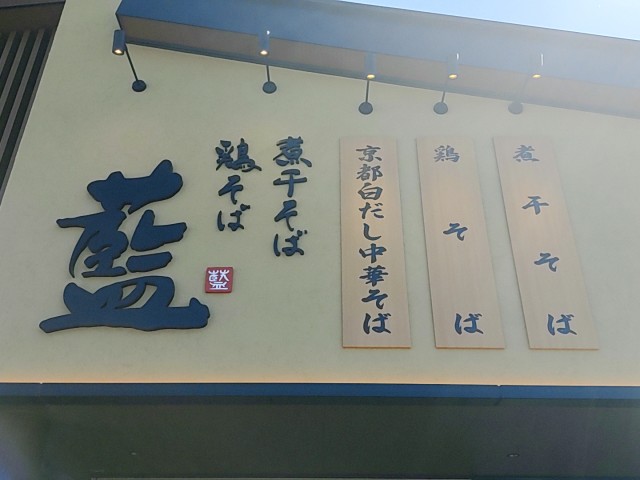 煮干そば
鶏そば
藍
藍
煮干そば
鶏そば
京都白だし中華そば